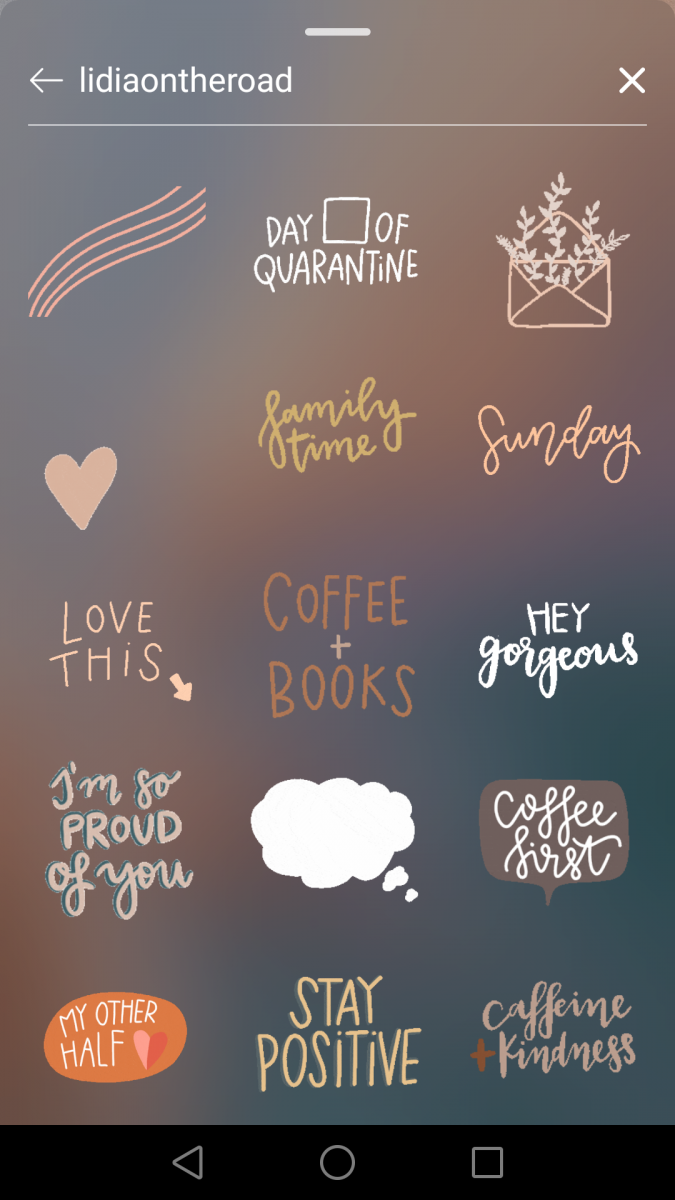 lidiaontheroad
DAY OF
QUARANTINE
family
time
Sunday
LOVE
THIS
COFFEE
+
BOOKS
HEY
gorgeous
I'm so
PROUD
of you
Coffee
first
MY OTHER
HALF
STAY
POSITIVE
Caffeine
+Kindness